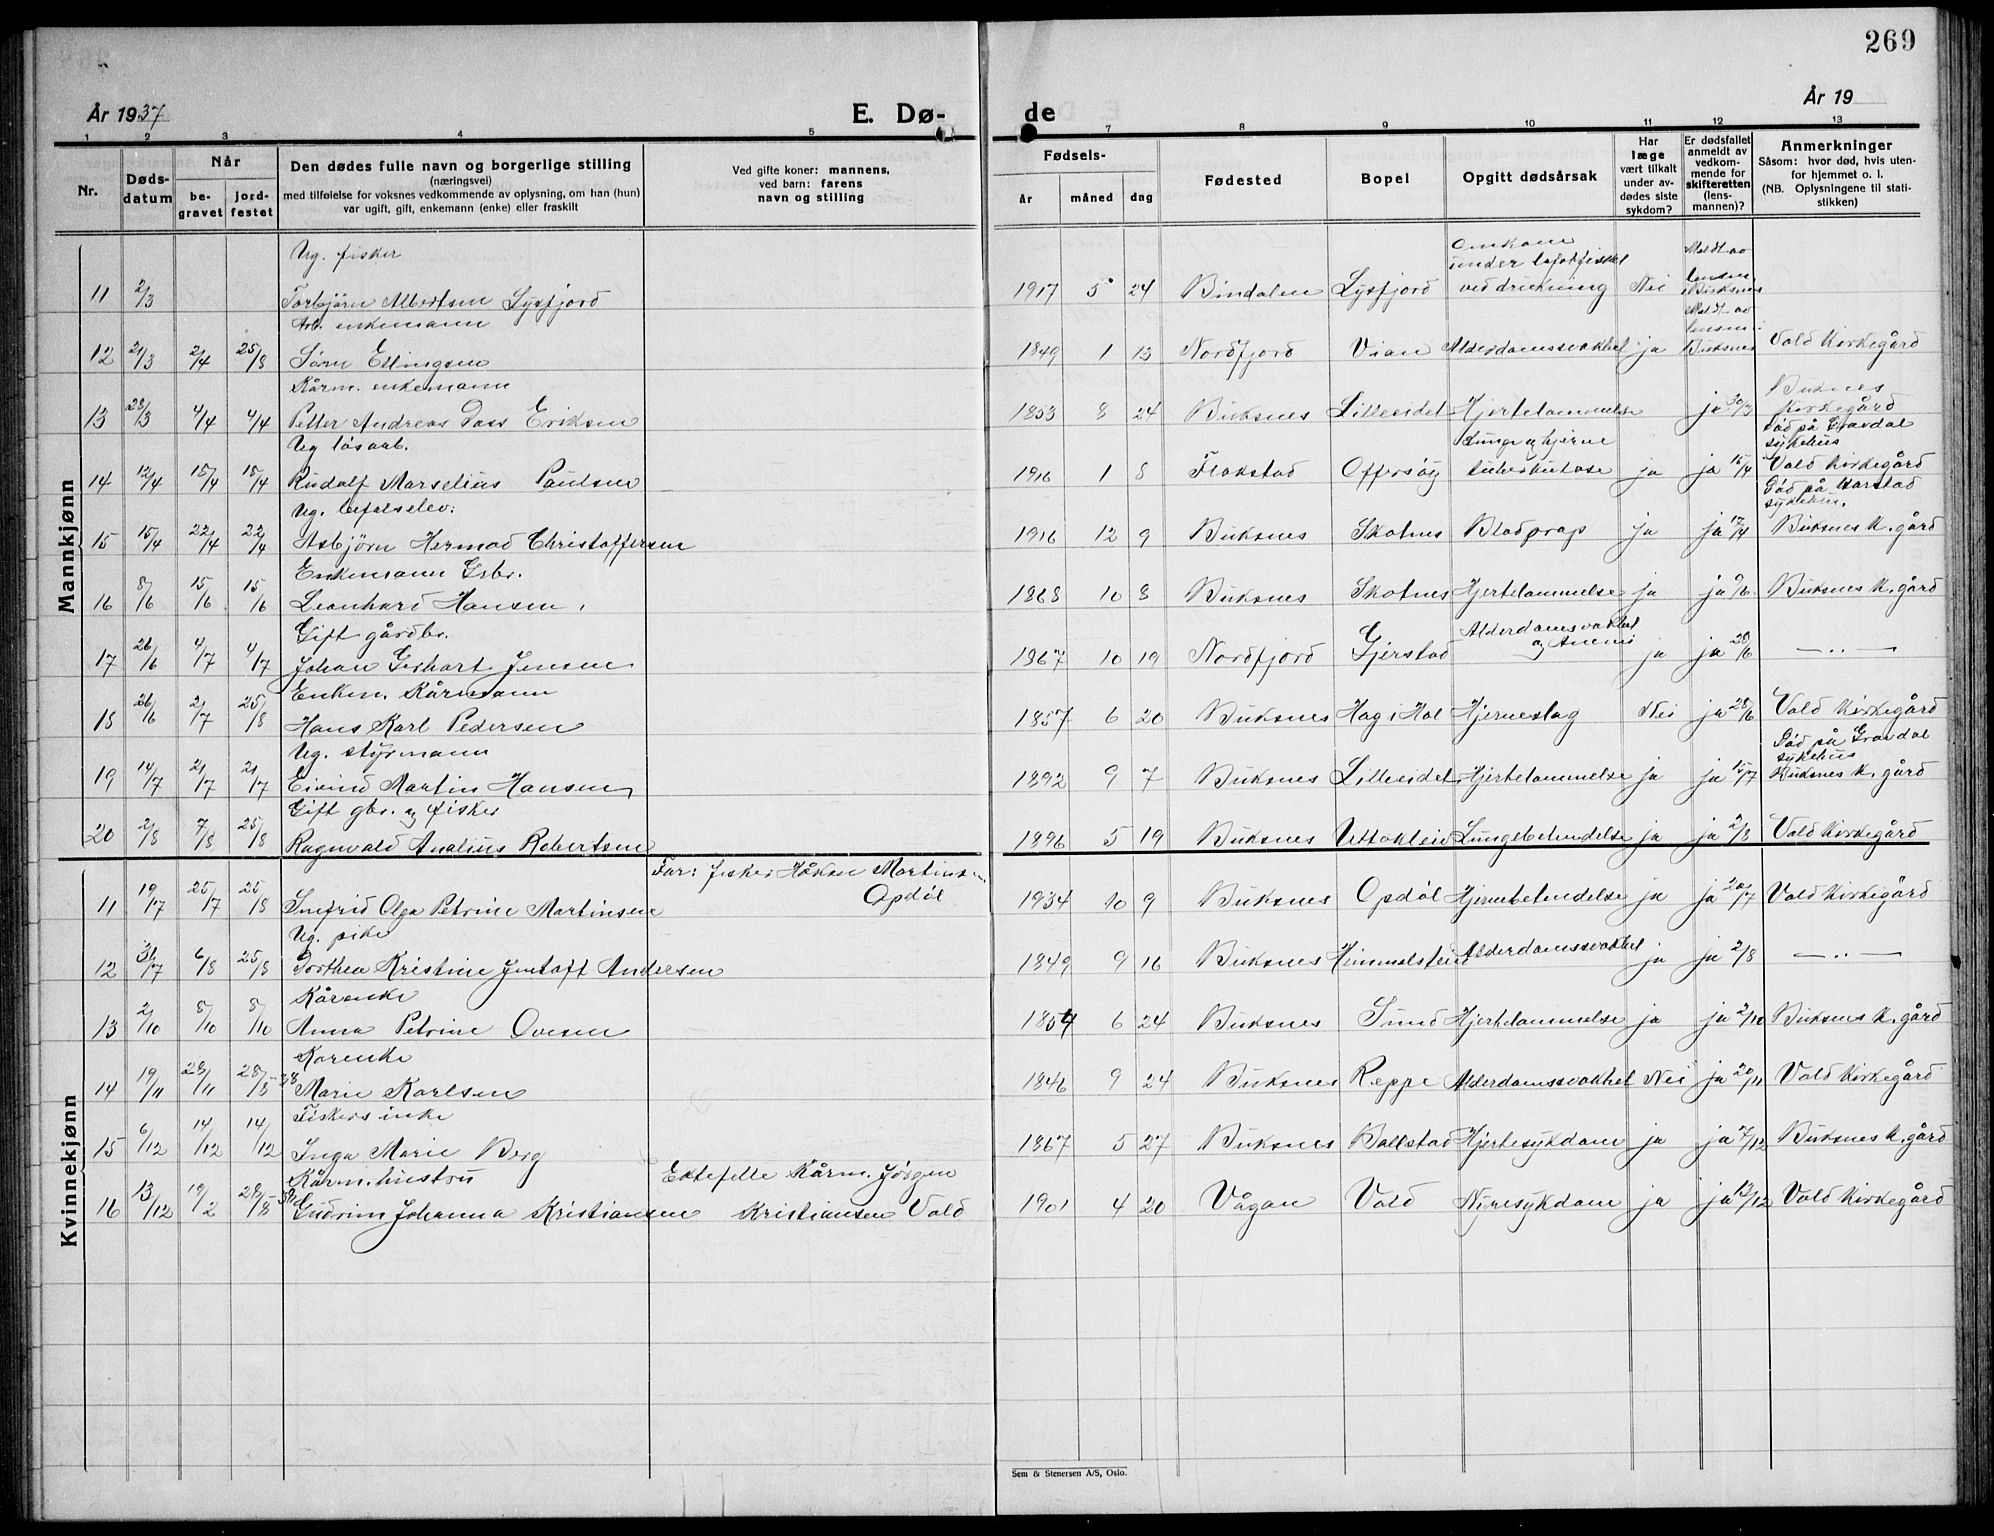 269
År 1937
E. Dø-
de
År 19
1 2 3 4 5 7 8 9 10 11 12 13
Nr.
Døds-
datum
Når
be-
gravet
jord-
festet
Den dødes fulle navn og borgerlige stilling
(næringsvei)
med tilføielse for voksnes vedkommende av oplysning, om han (hun)
var ugift, gift, enkemann (enke) eller fraskilt
Ved gifte koner: mannens,
ved barn: farens
navn og stilling
Fødsels-
år måned dag
Fødested
Bopel
Opgitt dødsårsak
Har
læge
vært tilkalt
under av-
dødes siste
sykdom?
Er dødsfallet
anmeldt av
vedkom-
mende for
skifteretten
(lens-
mannen)?
Anmerkninger
Såsom: hvor død, hvis uten-
for hjemmet o. l.
(NB. Oplysningene til stati-
stikken)
Mannkjønn
Ug. fisker Omkom Meldt av
under lofotfisket
11 2/3 Torbjörn Albertsen Lysfjord 1917 5 24 Bindalen Lysfjord ved drukning Nei lensm. i Buksnes
Arb. enkemann Meldt av lensm. i
12 21/3 2/4 25/8 Sörn Ellingsen 1849 1 13 Nordfjord Vian Alderdomssvakhet ja Buksnes Vold Kirkegård
Kårm. enkemann Buksnes
13 28/3 4/4 4/4 Petter Andreas Dass Eriksen 1853 8 24 Buksnes Lilleeidet Hjertelammelse ja 30/3 Kirkegård
Ug løsarb. Lunge og hjerne Död på Gravdal sykehus
14 12/4 18/4 18/4 Rudolf Marselius Paulsen 1916 1 8 Flakstad Offersöy tuberkulose ja ja 15/4 Vold Kirkegård
Ug. befalselev. Död på Harstad sykehus.
15 15/4 22/4 22/4 Asbjörn Hermod Christoffersen 1916 12 9 Buksnes Skotnes Blodprop ja ja 17/4 Buksnes K. gård
Enkemann Gsbr.
16 8/6 15/6 15/6 Leonhard Hansen 1868 10 8 Buksnes Skotnes Hjertelammelse ja ja 9/6 Buksnes K. gård
Gift gårdbr. Alderdomssvakhet
17 26/6 4/7 4/7 Johan Gerhart Jensen 1867 10 19 Nordfjord Gjerstad og Anemi ja ja 28/6 — „ —
Enkem. Kårmann
18 26/6 2/7 25/8 Hans Karl Pedersen 1857 6 20 Buksnes Hag i Hol Hjerneslag Nei ja 28/6 Vold Kirkegård
Ug. styrmann Död på Gravdal sykehus
19 14/7 21/7 21/7 Eivind Martin Hansen 1892 9 7 Buksnes Lilleeidet Hjertelammelse ja ja 15/7 Buksnes K. gård
Gift gbr. og fisker
20 2/8 7/8 25/8 Ragnvald Analius Robertsen 1896 5 19 Buksnes Uttakleiv Lungebetendelse ja ja 2/8 Vold Kirkegård
Kvinnekjønn
Far: fisker Håkon Martinsen
11 19/7 25/7 25/8 Ingrid Olga Petrine Martinsen Opdöl 1934 10 9 Buksnes Opdöl Hjernebetendelse ja ja 20/7 Vold Kirkegård
Ug. pike
12 31/7 6/8 25/8 Dorthea Kristine Jentoft Andersen 1849 9 16 Buksnes Himmelstein Alderdomssvakhet ja ja 2/8 — „ —
Kårenke
13 2/10 8/10 8/10 Anna Petrine Ovesen 1854 6 24 Buksnes Sund Hjertelammelse ja ja 2/10 Buksnes K. gård
Kårenke
14 19/11 28/11 28/8-38 Marie Karlsen 1846 9 24 Buksnes Reppe Alderdomssvakhet Nei ja 20/11 Vold Kirkegård
Fiskers enke
15 6/12 14/12 14/12 Inga Marie Berg 1867 5 27 Buksnes Ballstad Hjertesykdom ja ja 7/12 Buksnes K. gård
Kårm. hustru Ektefelle Kårm. Jörgen
16 13/12 19/2 28/8-38 Gudrun Johanna Kristiansen Kristiansen Vold 1901 4 20 Vågan Vold Nyresykdom ja ja 13/12 Vold Kirkegård
Sem & Stenersen A/S, Oslo.